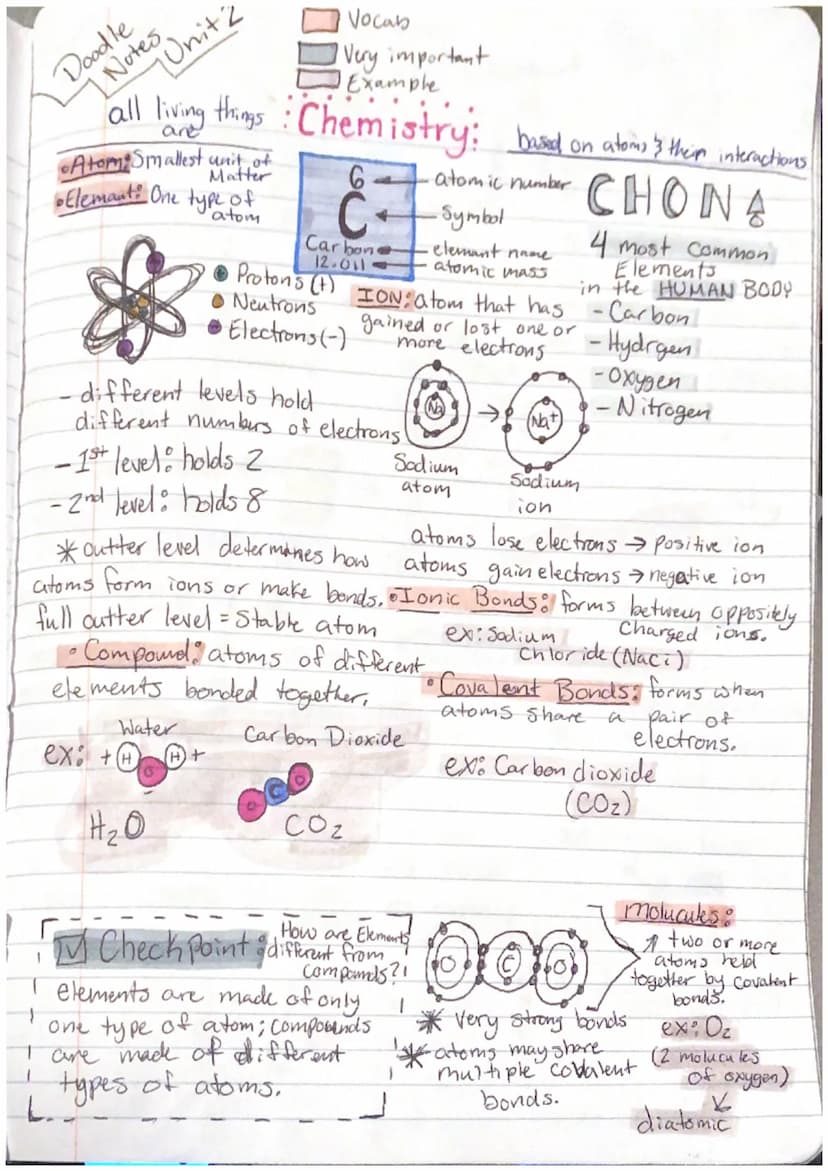 Doodle
Notes
Unit 2
Vocab
Very important
Example
all living things
are
Chemistry:
based on atoms & their interactions
•Atom: Smallest unit of
Matter
•Elemant: One type of
atom
6
C
Carbon
12.011
atomic number
Symbol
elemant name
atomic mass
CHON
4 most common
Elements
in the HUMAN BODY
- Carbon
- Hydrgen
- Oxygen
- Nitrogen
Protons (+)
Neutrons
Electrons (-)
ION: atom that has
gained or lost one or
more electrons
- different levels hold
different numburs of electrons
- 1st level: holds 2
- 2nd level: holds 8
Na
→
Na+
Sodium
atom
Sodium
ion
* outter level determines how
atoms form ions or make bonds.
full outter level = Stable atom
atoms lose electrons → positive ion
atoms gain electrons → negative ion
•Ionic Bonds: forms between oppositely
Charged ions.
ex: Sodium
Chloride (NaCi)
•Compound: atoms of different
elements bonded together.
•Covalent Bonds: forms when
atoms share a pair of
electrons.
ex: Carbon dioxide
(CO2)
ex:
Water
+ H H +
O
-
H2O
Carbon Dioxide
O C O
CO2
Checkpoint:
How are Elements
different from
compounds?!
elements are made of only
one type of atom; compounds
are made of different
types of atoms.
O C O
* Very strong bonds
* atoms may share
multiple covalent
bonds.
Molucules:
two or more
atoms held
together by covalent
bonds.
ex: O2
(2 molucules
of oxygen)
diatomic